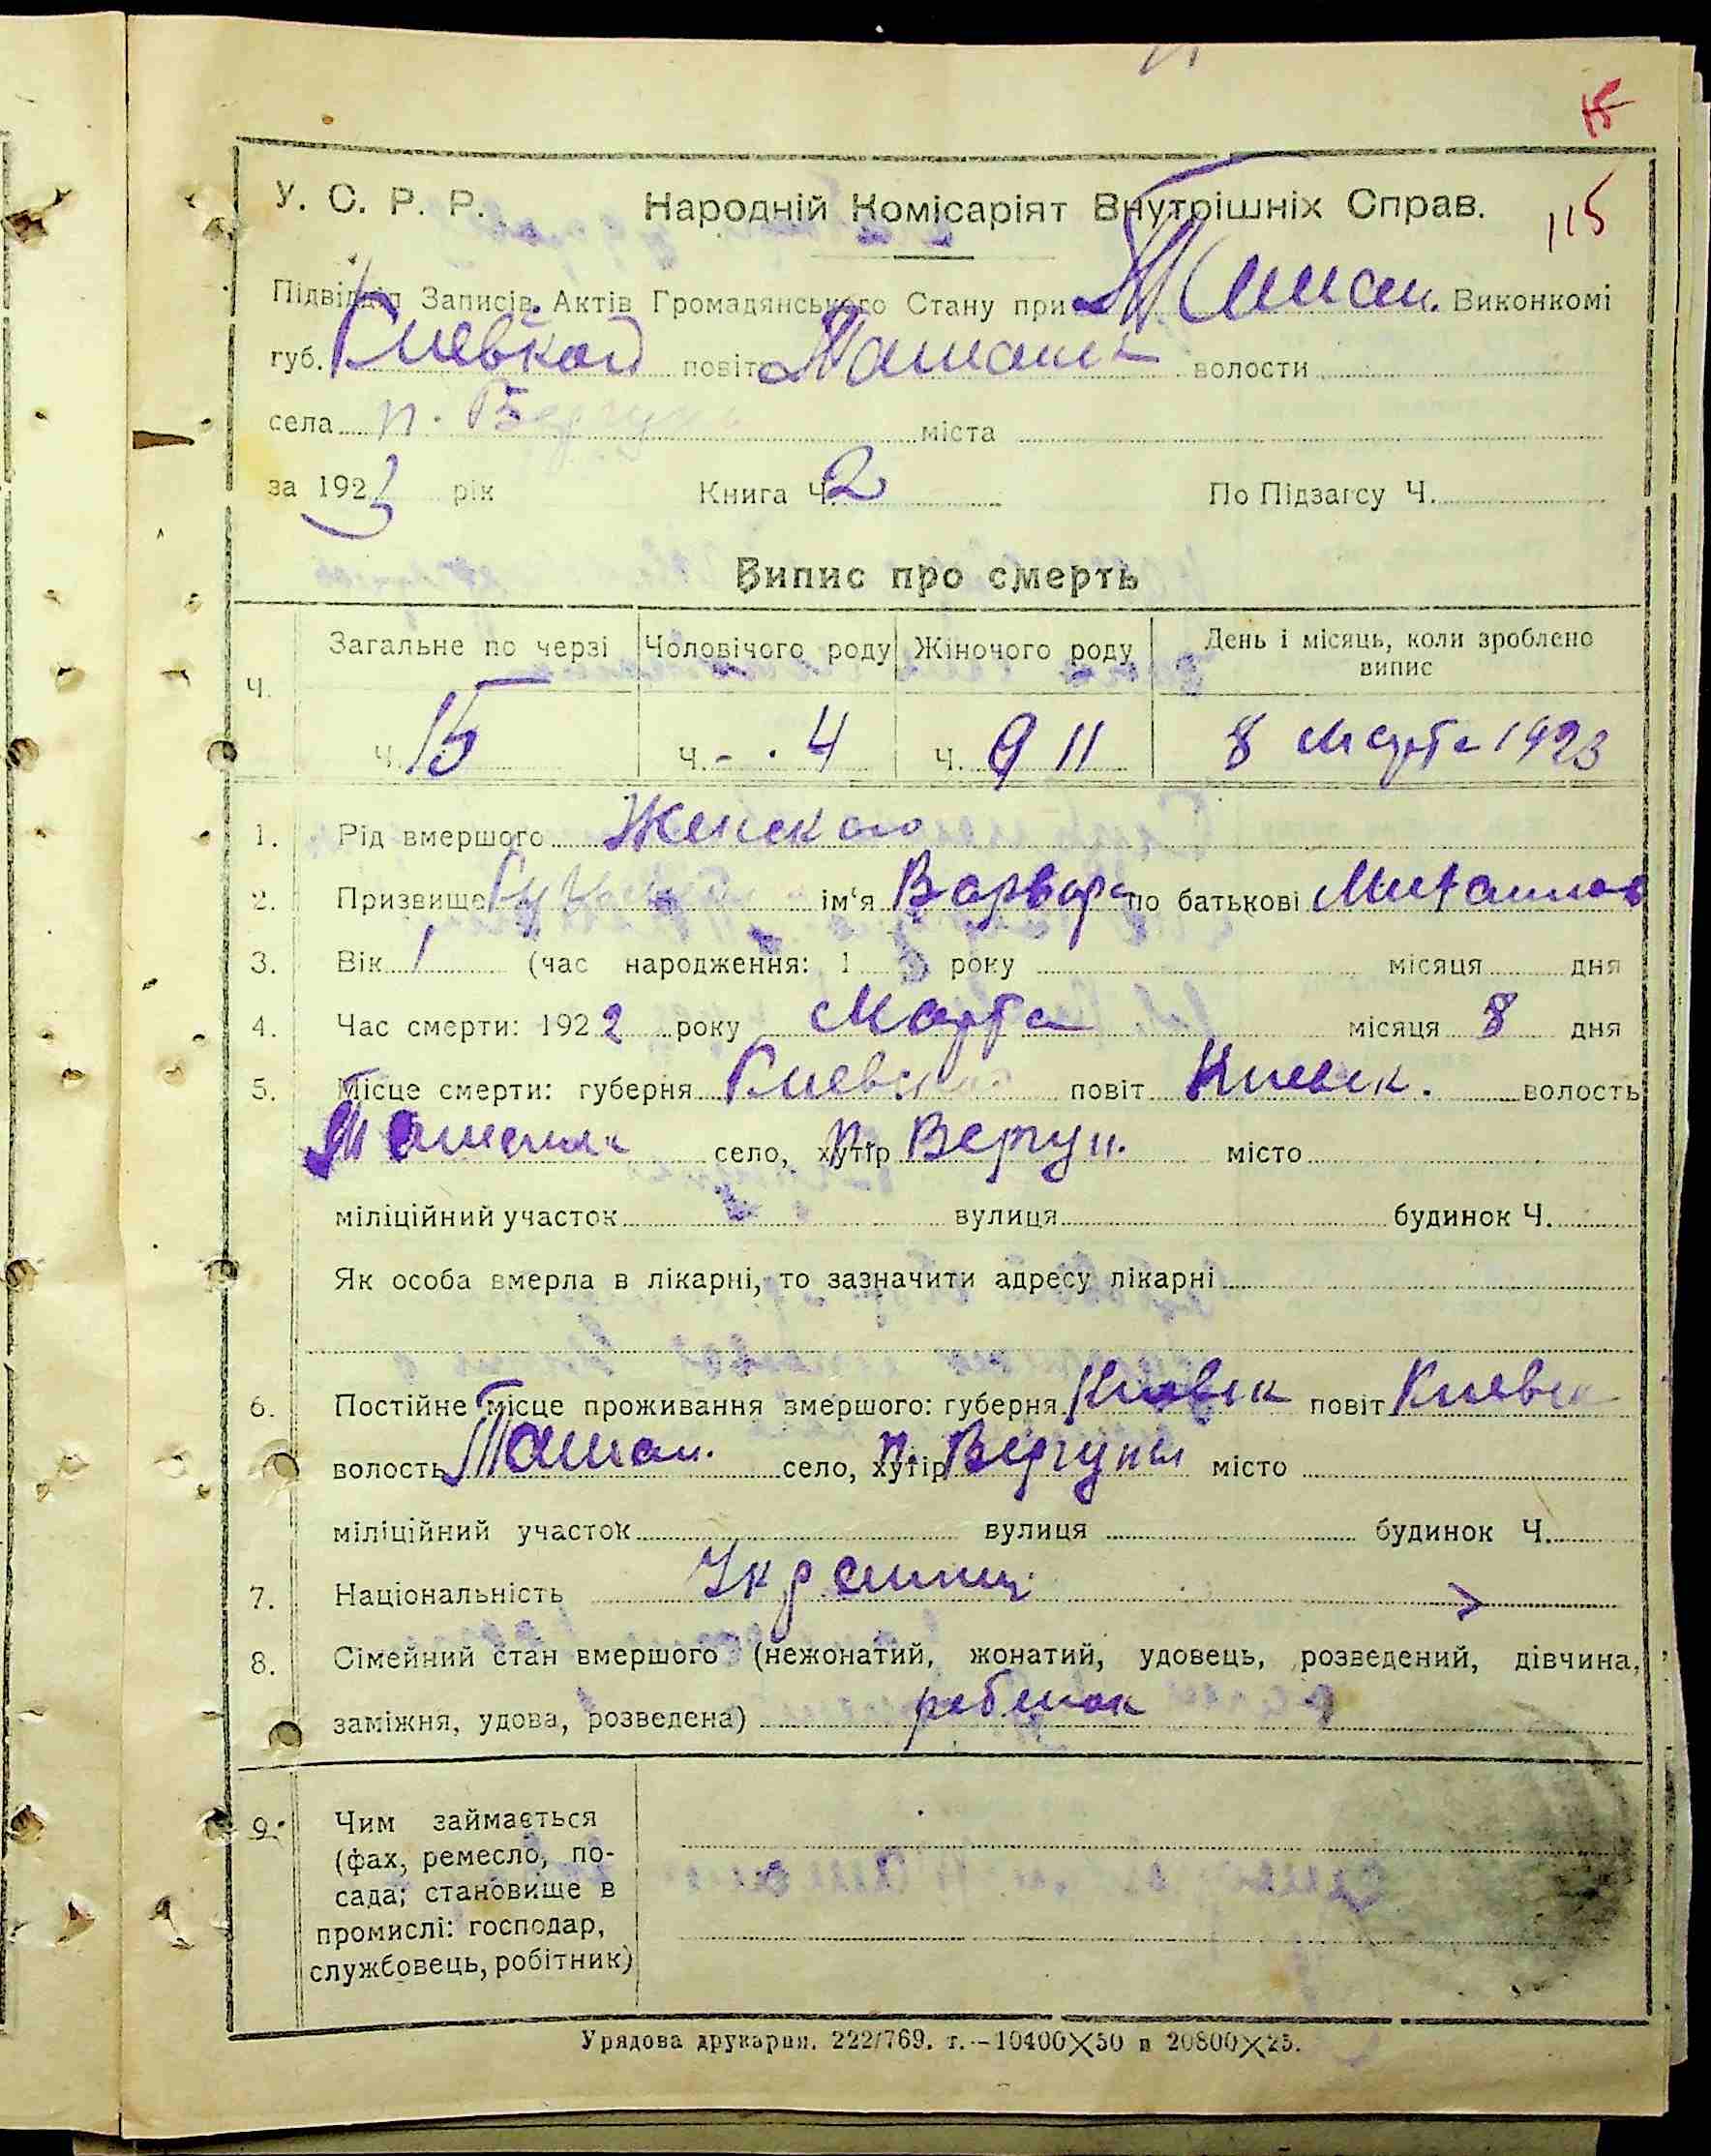 15
115
У. С. Р. Р. Народній Комісаріят Внутрішніх Справ.
Підвідділ Записів Актів Громадянського Стану при Ташан. Виконкомі
губ. Киевской повіт Ташанск волости
села п. міста
за 1923 рік Книга Ч. 2 По Підзагсу Ч.
Випис про смерть
Загальне по черзі Чоловічого роду Жіночого роду День і місяць, коли зроблено
випис
Ч.
Ч. 15 Ч. - . 4 Ч. 9 11 8 Марта 1923
1. Рід вмершого Женского
2. Призвище ім'я Варвара по батькові
3. Вік 1 (час народження: 1 року місяця дня
4. Час смерти: 1922 року Марта місяця 8 дня
5. Місце смерти: губерня повіт Киевск. волость
село, хутір Вергун. місто
міліційний участок вулиця будинок Ч.
Як особа вмерла в лікарні, то зазначити адресу лікарні
6. Постійне місце проживання вмершого: губерня Киевск повіт Киевск
волость Ташан. село, хутір п. Вергуны місто
міліційний участок вулиця будинок Ч.
7. Національність
8. Сімейний стан вмершого (нежонатий, жонатий, удовець, розведений, дівчина,
заміжня, удова, розведена) ребенок
9. Чим займається
(фах, ремесло, по-
сада; становище в
промислі: господар,
службовець, робітник)
Урядова друкарня. 222/769. т.—10400X50 п 20800X25.